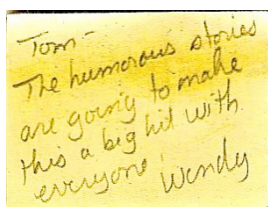 Tom-
The humorous stories
are going to make
this a big hit with
everyone!
Wendy